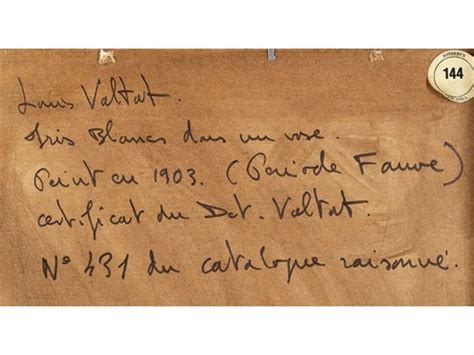 Louis Valtat.
Iris Blancs dans un vase.
Peint en 1903. (Période Fauve)
certificat du Dct. Valtat.
N° 431 du catalogue raisonné.
SOTHEBY'S
144